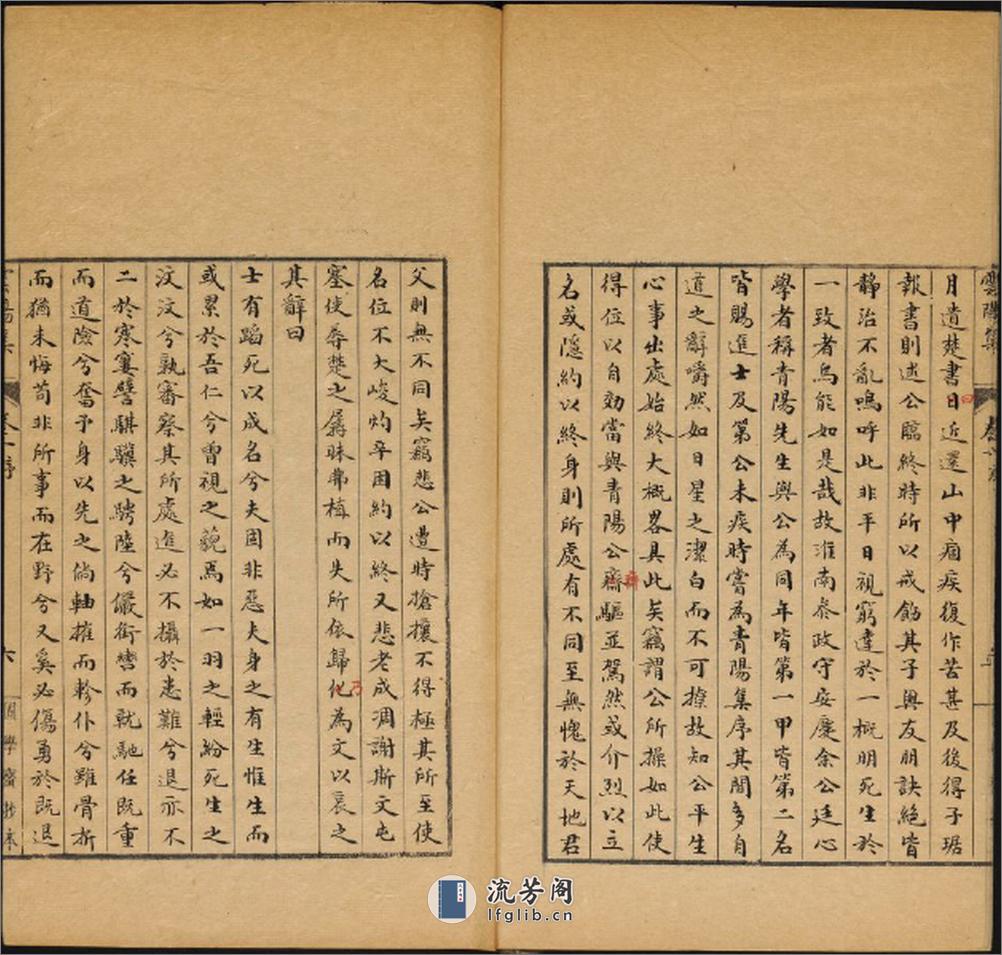 雲陽集
月遺楚書日近還山中痼疾復作苦甚及後得子琚
曰
報書則述公臨終時所以戒飭其子與友朋訣絕皆
靜治不亂嗚呼此非平日視窮達於一概明死生於
一致者烏能如是哉故淮南參政守安慶余公廷心
學者稱青陽先生與公為同年皆第一甲皆第二名
皆賜進士及第公未疾時嘗為青陽集序其間多自
道之辭嚼然如日星之潔白而不可掩故知公平生
心事出處始終大概畧具此矣竊謂公所操如此使
得位以自効當與青陽公齋驅並駕然或介烈以立
齊
名或隱約以終身則所處有不同至無愧於天地君
父則無不同矣竊悲公遭時搶攘不得極其所至使
名位不大峻灼卒困約以終又悲老成凋謝斯文屯
塞使孱楚之孱昧弗植而失所依歸化為文以哀之
乃
其辭曰
士有蹈死以成名兮夫固非惡夫身之有生惟生而
或累於吾仁兮曾視之藐焉如一羽之輕紛死生之
汶汶兮孰審察其所處進必不攝於患難兮退亦不
二於寒窶譬騏驥之騁陸兮儼銜轡而就馳任既重
而道險兮奮予身以先之倘軸摧而軫仆兮雖骨折
而猶未悔苟非所事而在野兮又奚必傷勇於既退
雲陽集
序
六
學齋抄本
流芳阁
lfglib.cn